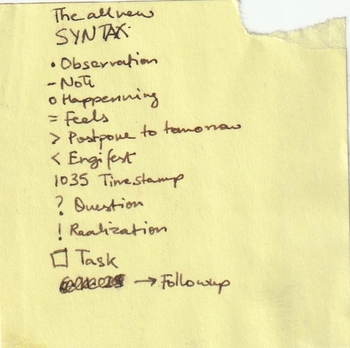 The all new
SYNTAX
• Observation
- Note
o Happenning
= Feels
> Postpone to tomorrow
< Engifest
1035 Timestamp
? Question
! Realization
☐ Task
→ Followup